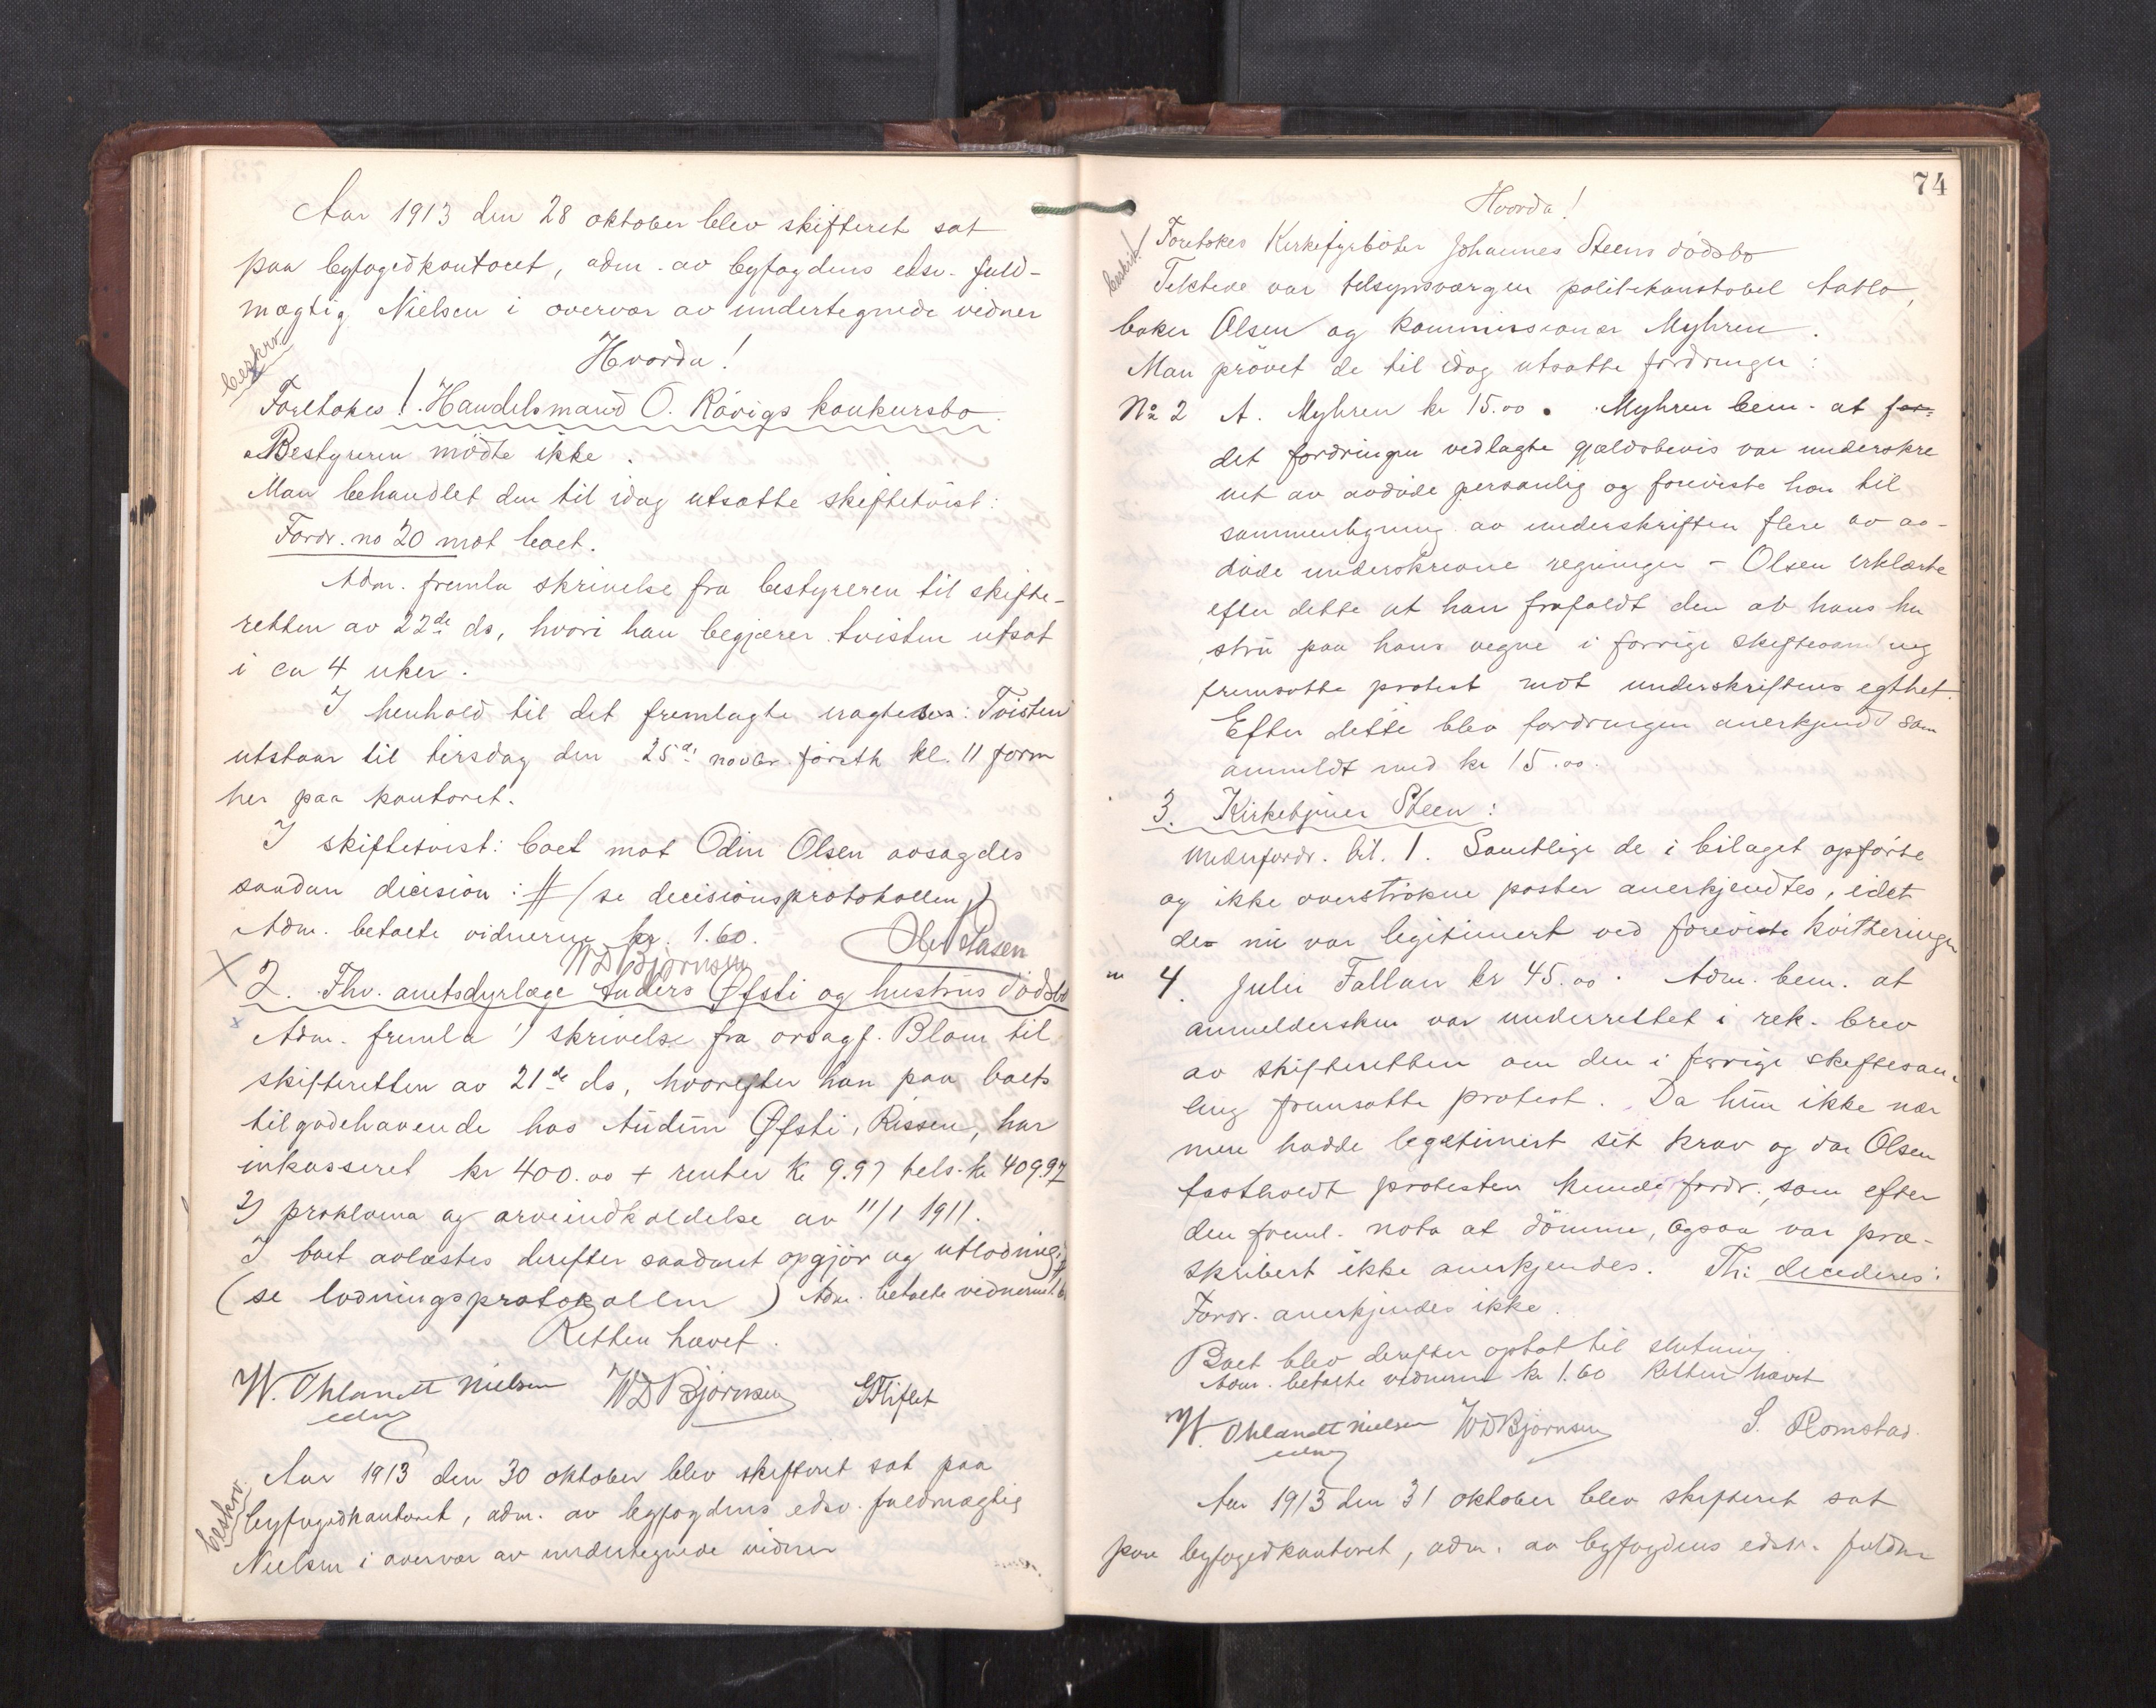 Aar 1913 den 28 oktober blev skifteret sat
paa byfogedkontoret, adm. av byfogdens edsv. fuld-
mægtig Nielsen i overvær av undertegnede vidner
Hvorda!
beskrev.
Foretokes 1. Handelsmand O. Rövigs konkursbo.
Bestyreren mödte ikke.
Man behandlet den til idag utsatte skiftetvist:
Fordr. no 20 mot boet.
Adm. fremla skrivelse fra bestyreren til skifte-
retten av 22de ds, hvori han begjærer tvisten utsat
i ca 4 uker.
I henhold til det fremlagte eragtedes: Tvisten
utstaar til tirsdag den 25de novbr. förstk kl. 11 form
her paa kontoret.
I skiftetvist: boet mot Odin Olsen avsagdes
saadan dicision: # (se decisionsprotokollen)
Adm. betalte vidnerne kr. 1.60.
WDBjörnsen
2. Fhv. amtsdyrlæge Anders Øfsti og hustrus dödsbo
Adm. fremla 1) skrivelse fra orsagf. Blom til
skifteretten av 21de ds, hvorefter han paa boets
tilgodehavende hos Audun Øfsti, Rissen, har
inkasseret kr 400.00 + renter kr 9.97 tils. kr 409.97
2) proklama og arveindkaldelse av 11/1 1911.
I boet avlæstes derefter saadant opgjör og utlodning: #
(se lodningsprotokollen) Adm. betalte vidnerne
Retten hævet.
W. Ohlandt Nielsen WDBjörnsen
edsv
beskrev.
Aar 1913 den 30 oktober blev skifteret sat paa
byfogedkontoret, adm. av byfogdens edsv. fuldmægtig
Nielsen i overvær av undertegnede vidner
74
Hvorda!
beskrev.
Foretokes Kirkefyrböter Johannes Steens dödsbo
Tilstede var tilsynsværgen politikonstabel Aatlo,
baker Olsen og kommissionær Myhren.
Man prövet de til idag utsatte fordringer:
No 2 A. Myhren kr 15.00. Myhren bem. at for-
det fordringen vedlagte gjældsbevis var underskre
vet av avdöde personlig og foreviste han til
sammenligning av underskriften flere av av-
döde underskrevne regninger - Olsen erklærte
efter dette at han frafaldt den av hans hu
stru paa hans vegne i forrige skiftesamling
fremsatte protest mot underskriftens egthet.
Efter dette blev fordringen anerkjendt som
anmeldt med kr 15.00.
3. Kirketjener Steen:
Underfordr. bil. 1. Samtlige de i bilaget opförte
og ikke overströkne poster anerkjendtes, idet
de nu var legitimert ved foreviste kvitteringer
" 4. Julie Fallan kr 45.00. Adm. bem. at
anmeldersken var underrettet i rek. brev
av skifteretten om den i forrige skiftesam-
ling fremsatte protest. Da hun ikke nær
mere hadde legitimert sit krav og da Olsen
fastholdt protesten kunde fordr., som efter
den freml. nota at dömme, ogsaa var præ-
skribert ikke anerkjendes. Thi decideres:
Fordr. anerkjendes ikke.
Boet blev derefter optat til slutning.
Adm. betalte vidnerne kr 1.60 Retten hævet
W. Ohlandt Nielsen WDBjörnsen S. Romstad.
edsv
Aar 1913 den 31 oktober blev skifteret sat
paa byfogedkontoret, adm. av byfogdens edsv. fuldm